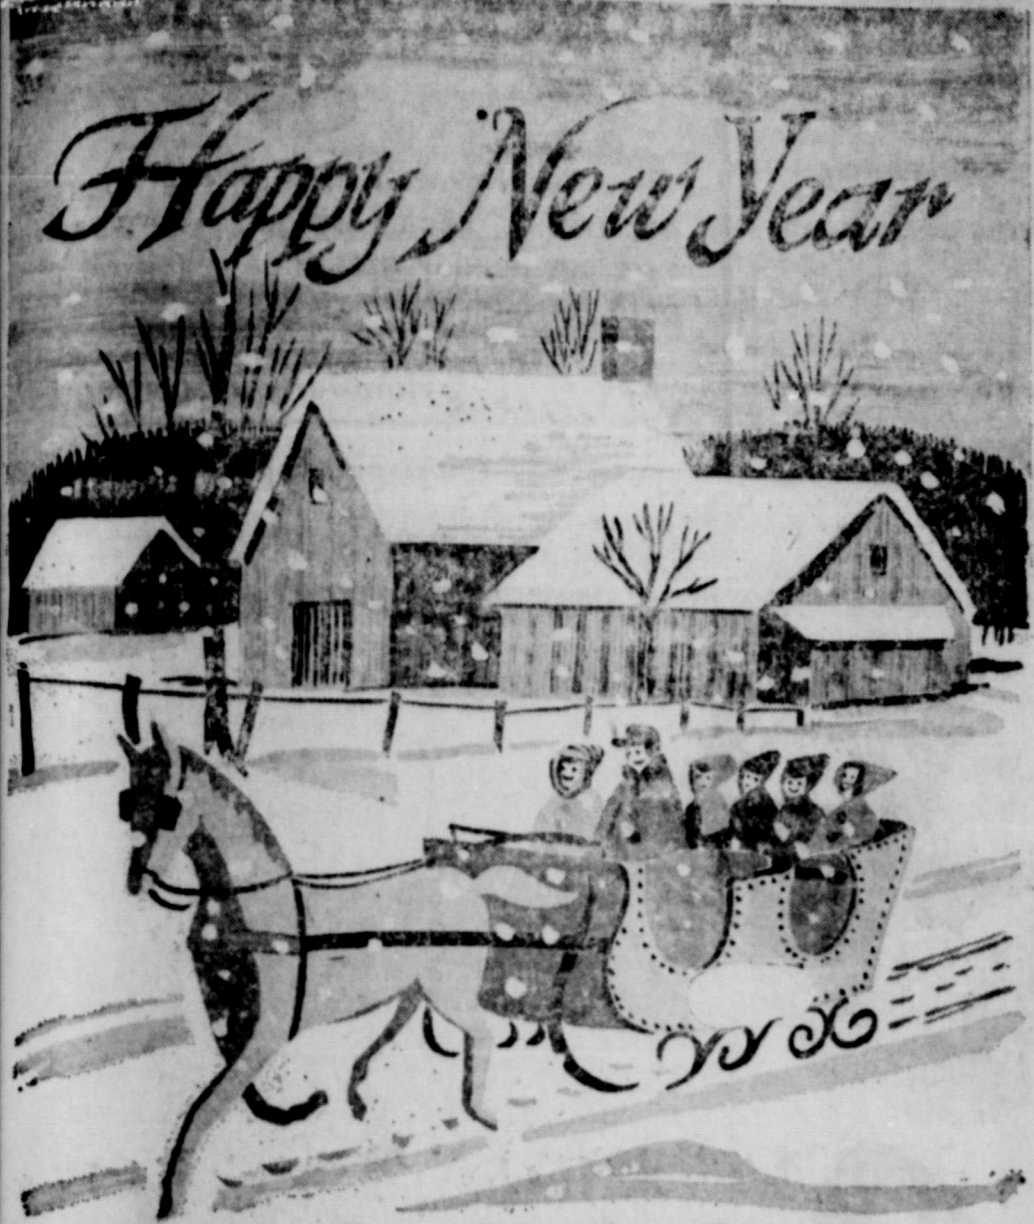 Happy New Year